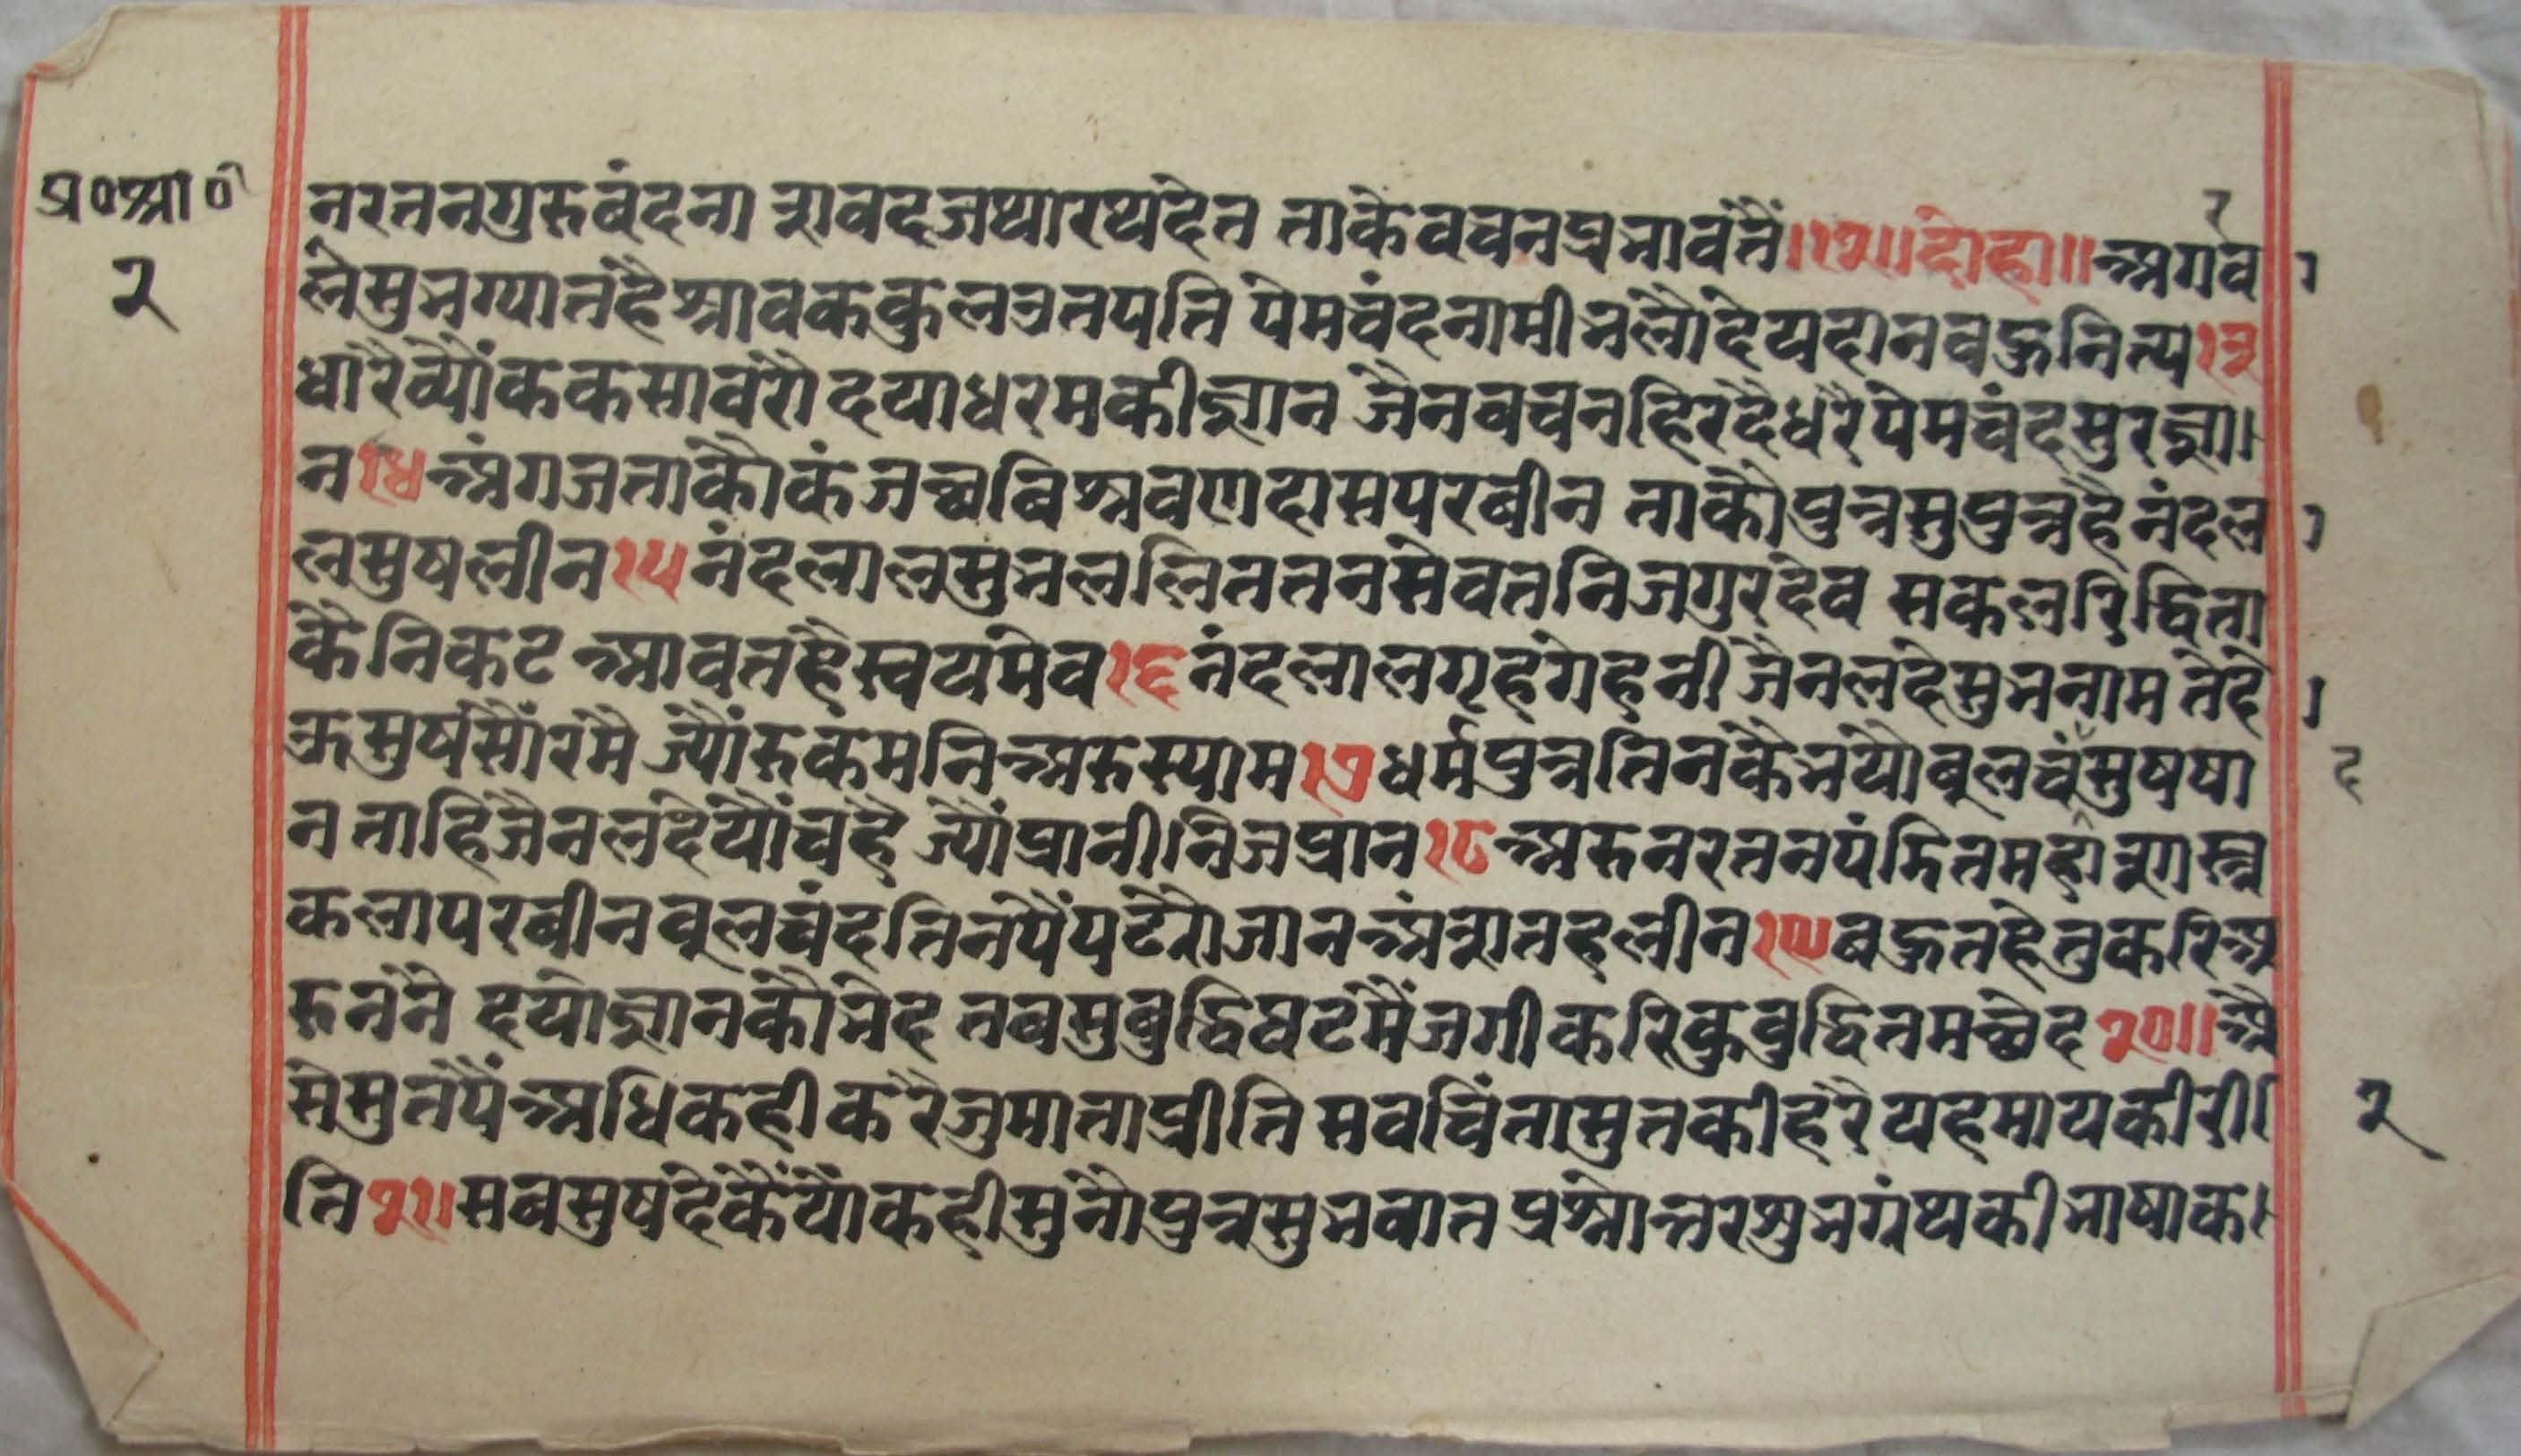 प्र०श्रा०
२
नरतनगुरुवंदना रावदजथारथदेत ताकेवचनप्रभावतैं।१२॥दोहा॥अगरव
लेसुभग्यातहैश्रावककुलव्रतपति पेमचंदनामीभलौदेयदानवहुनित्य१३
धारैव्यौंककसावरौ दयाधरमकीज्ञान जैनवचनहिरदैधरैपेमचंदसुरज्ञा।
न१४अंगजताकौकंजच्छविश्रवणदासपरबीन ताकौपुत्रसुपुत्रहैनंदल
लसुषलीन१५नंदलालसुभललिततनसेवतनिजगुरदेव सकलरिद्धिता
कैनिकट आवतहैस्वयमेव१६नंदलालगृहगेहनी जैनलदेसुभनाम तेहै
ऊसुषसौंरमै ज्यौंरुकमनिअरुस्याम१७धर्मपुत्रतिनकैभयौबूलचंसुषषा
न ताहिजैनलदेयौंचहै ज्यौंप्रानीनिजप्रान१८अरुनरतनपंडितमहा
कलापरबीन बूलचंदतिनपैंपढैरोजानअंन्रातहलीन१९बहुतहेतुकरिअ
रुनने दयोज्ञानकौभेद तबसुबुद्धिघटमैंजगीकरिकुबुद्धितमछेद२०॥अै
सेसुतपैंअधिकहीकरैजुमाताप्रीति सवचिंतासुतकीहरैयहमायकीरी
ति२१।सबसुषदेकैंयौंकहीसुनौपुत्रसुभवात प्रश्नोत्तरशुभग्रंथकीभाषाक।
२